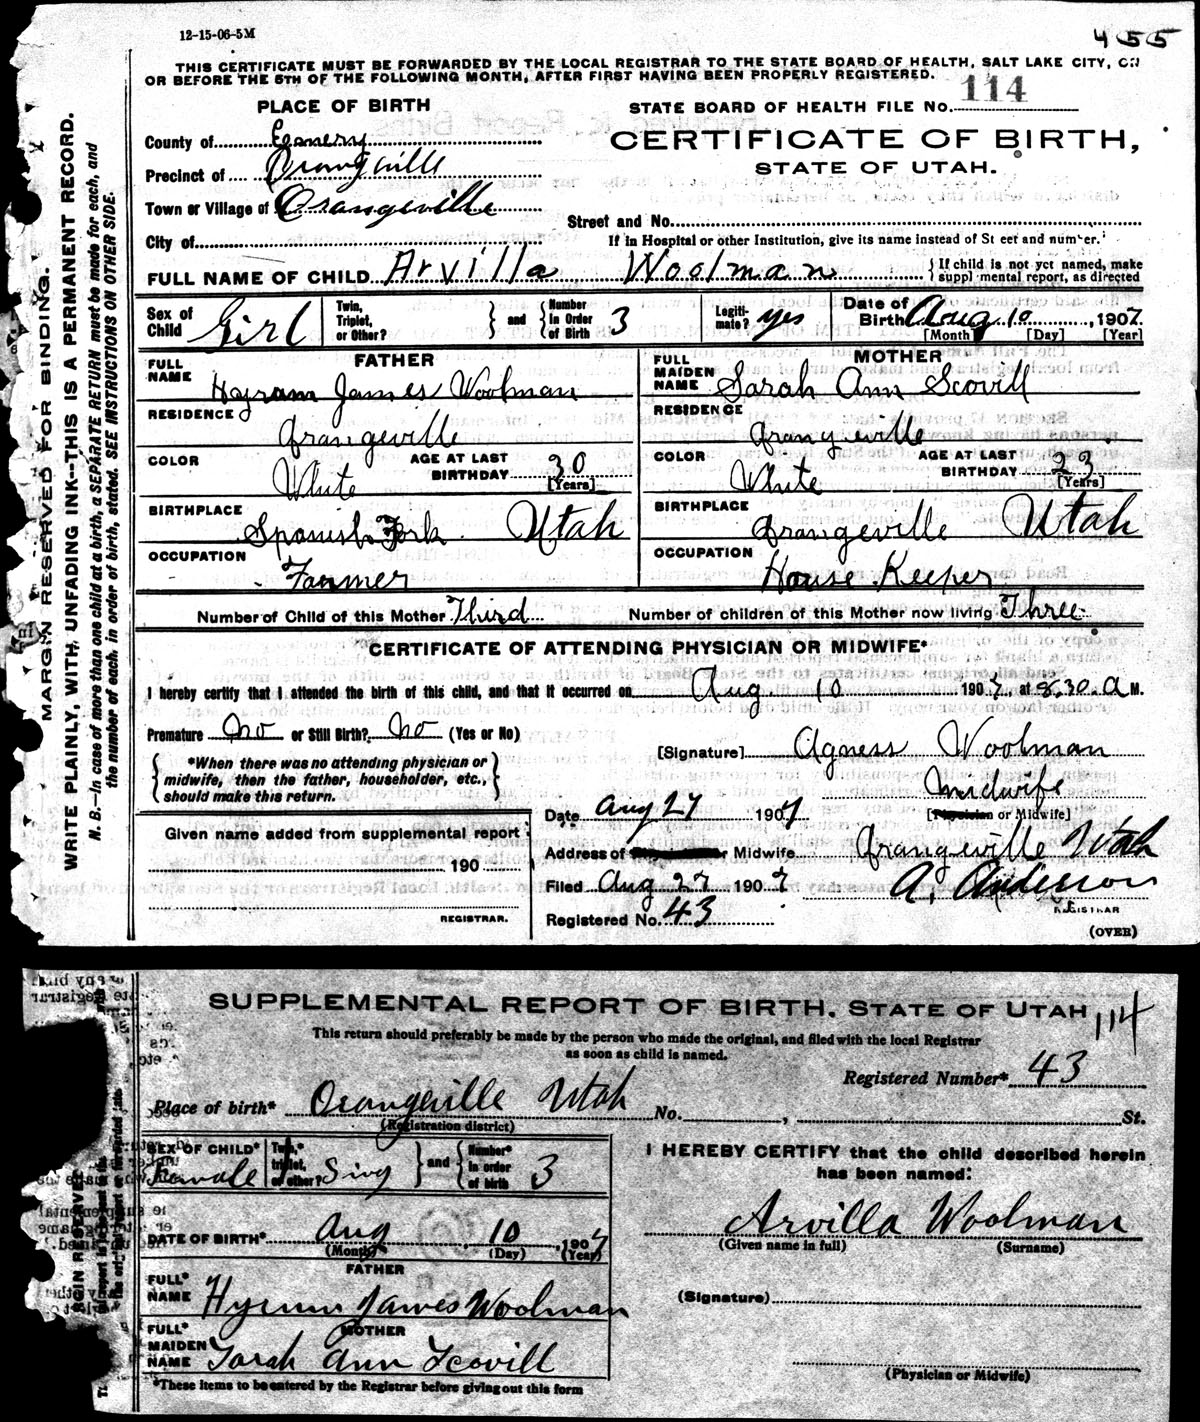 12-15-06-5M
455
THIS CERTIFICATE MUST BE FORWARDED BY THE LOCAL REGISTRAR TO THE STATE BOARD OF HEALTH, SALT LAKE CITY, ON
OR BEFORE THE 5TH OF THE FOLLOWING MONTH, AFTER FIRST HAVING BEEN PROPERLY REGISTERED.
PLACE OF BIRTH
STATE BOARD OF HEALTH FILE No. 114
County of Emery
CERTIFICATE OF BIRTH,
Precinct of Orangville
STATE OF UTAH.
Town or Village of Orangeville
Street and No.
City of
If in Hospital or other Institution, give its name instead of St eet and number.
FULL NAME OF CHILD Arvilla Woolman
{If child is not yet named, make
suppl mental report, as directed
Sex of Child Girl
Twin, Triplet, or Other?
and Number in Order of Birth 3
Legitimate? yes
Date of Birth Aug 10, 1907.
[Month] [Day] [Year]
FATHER
FULL NAME Hyram James Woolman
RESIDENCE Orangeville
COLOR White
AGE AT LAST BIRTHDAY 30 [Years]
BIRTHPLACE Spanish Fork Utah
OCCUPATION Farmer
MOTHER
FULL MAIDEN NAME Sarah Ann Scovill
RESIDENCE Orangeville
COLOR White
AGE AT LAST BIRTHDAY 23 [Years]
BIRTHPLACE Orangeville Utah
OCCUPATION House Keeper
Number of Child of this Mother Third
Number of children of this Mother now living Three
CERTIFICATE OF ATTENDING PHYSICIAN OR MIDWIFE*
I hereby certify that I attended the birth of this child, and that it occurred on Aug 10 1907, at 8,30. a M.
Premature no or Still Birth? no (Yes or No)
[Signature] Agness Woolman
*When there was no attending physician or
midwife, then the father, householder, etc.,
should make this return.
midwife
[Physician or Midwife]
Date Aug 27 1907
Given name added from supplemental report
190
REGISTRAR.
Address of r Midwife Orangeville Utah
Filed Aug 27 1907
A. Anderson
REGISTRAR
Registered No. 43
(OVER)
MARGIN RESERVED FOR BINDING.
WRITE PLAINLY, WITH UNFADING INK--THIS IS A PERMANENT RECORD.
N. B.—In case of more than one child at a birth, a SEPARATE RETURN must be made for each, and
the number of each, in order of birth, stated. SEE INSTRUCTIONS ON OTHER SIDE.
SUPPLEMENTAL REPORT OF BIRTH, STATE OF UTAH
114
This return should preferably be made by the person who made the original, and filed with the local Registrar
as soon as child is named.
Registered Number* 43
Place of birth* Orangeville Utah No. , St.
(Registration district)
SEX OF CHILD* Female
Twin,* triplet, or other? Sing
and Number* in order of birth 3
I HEREBY CERTIFY that the child described herein
has been named:
DATE OF BIRTH* Aug 10, 1907
(Month) (Day) (Year)
Arvilla Woolman
(Given name in full) (Surname)
FATHER
FULL* NAME Hyrum James Woolman
(Signature)
MOTHER
FULL* MAIDEN NAME Sarah Ann Scovill
(Physician or Midwife)
*These items to be entered by the Registrar before giving out this form